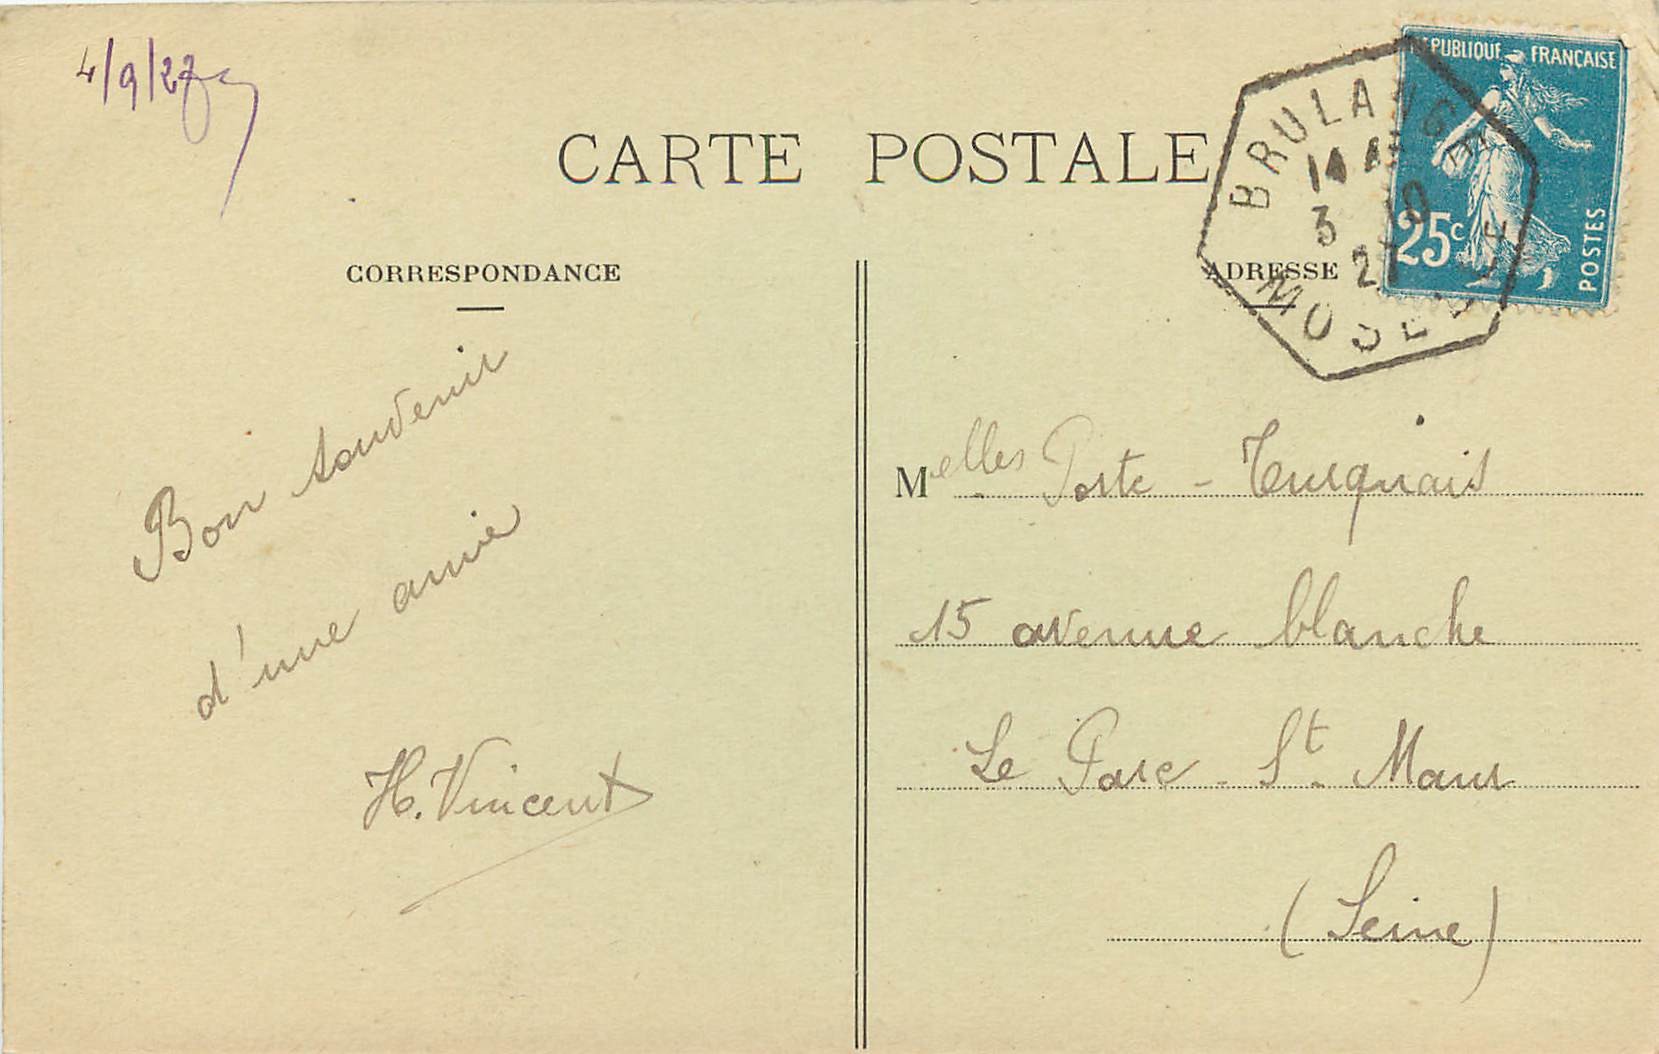 4/9/22
CARTE POSTALE
RÉPUBLIQUE FRANÇAISE
25c
POSTES
BRULANGE
14
3 10
2
MOSELLE
CORRESPONDANCE
ADRESSE
Bon souvenir
d'une amie
H. Vincent
Melles Porte - Turquais
15 avenue blanche
Le Parc - St. Maur
(Seine)